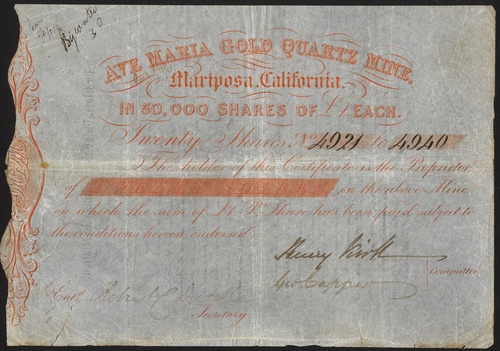 30
AVE MARIA GOLD QUARTZ MINE,
Mariposa, California.
IN 50,000 SHARES OF £1, EACH.
Twenty Shares, No. 4921 to 4940
The holder of this Certificate is the Proprietor
of TWENTY SHARES in the above Mine
on which the sum of £1. Pr. Share has been paid subject to
the conditions hereon endorsed.
Henry Kirk
Committee
Geo. Capper
Entd.
Secretary